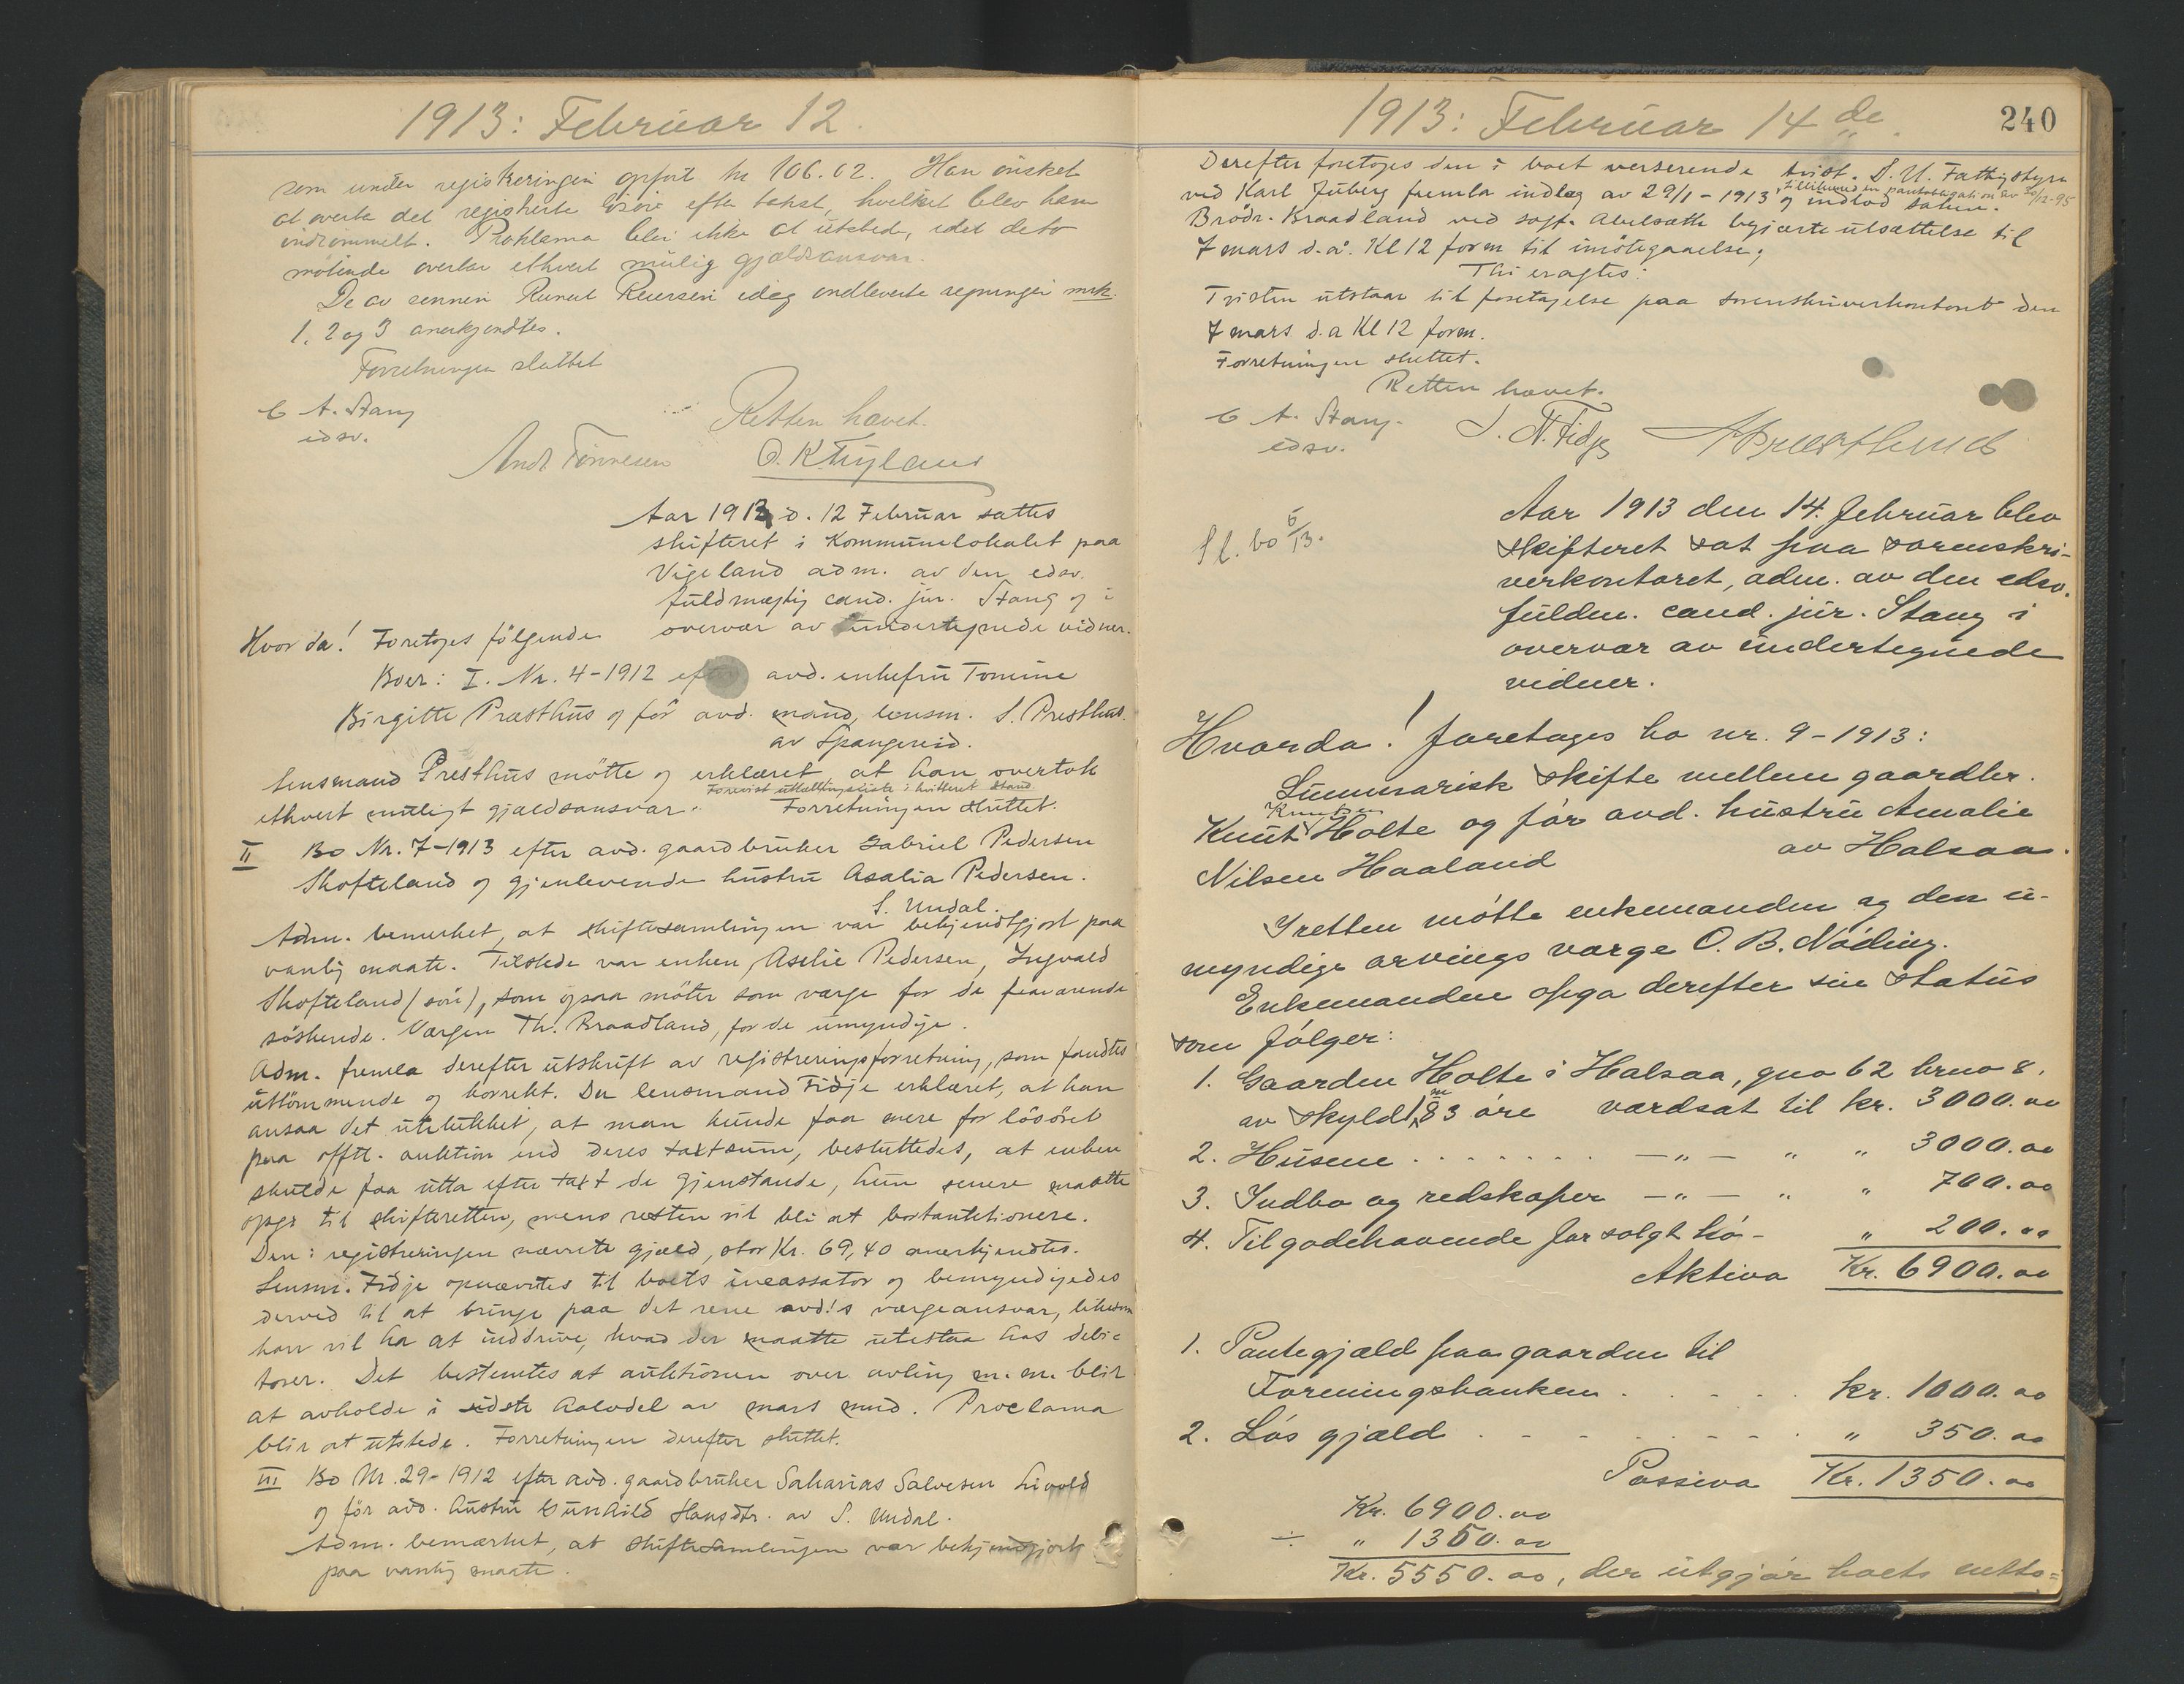 1913: Februar 12.
som under registreringen opført kr 106.02. Han ønsket
at overta det registrerte løsøre efter takst, hvilket blev ham
indrømmet. Proklama blir ikke at utstede, idet de to
møtende overtar ethvert mulig gjældsansvar.
De av sønnen Reiersen idag indleverte regninger mrk.
1, 2 og 3 anerkjendtes.
Forretningen sluttet
Retten hævet.
C A. Stang
edsv.
Andr Tønnesen O. K. Tryland
Aar 1913 d. 12 Februar sattes
skifteret i Kommunelokalet paa
Vigeland adm. av den edsv.
fuldmægtig cand. jur. Stang og i
overvær av undertegnede vidner.
Hvor da! Foretoges følgende
Boer: I. Nr. 4-1912 efter avd. enkefru Tomine
Birgitte Præsthus og før avd. mand, lensm. S. Presthus
av Spangereid.
Lensmand Presthus møtte og erklæret at han overtok
ethvert muligt gjældsansvar. Forevist utlodningsliste i kvitteret stand.
Forretningen sluttet.
II Bo Nr. 7-1913 efter avd. gaardbruker Gabriel Pedersen
Skofteland og gjenlevende hustru Asalia Pedersen.
S. Undal.
Adm. bemerket, at skiftesamlingen var bekjendtgjort paa
vanlig maate. Tilstede var enken, Aselie Pedersen, Ingvald
Skofteland (søn), som ogsaa møter som værge for de fraværende
søskende. Værgen Th. Braadland, for de umyndige.
Adm. fremla derefter utskrift av registreringsforretning, som fandtes
uttømmende og korrekt. Da lensmand Fidje erklæret, at han
ansaa det utelukket, at man kunde faa mere for løsøret
paa offtl. auktion end deres taxtsum, besluttedes, at enken
skulde faa utta efter taxt de gjenstande, hun senere maatte
opgi til skifteretten, mens resten vil bli at bortauktionere.
Den i registreringen nævnte gjæld, stor Kr. 69,40 anerkjendtes.
Lensm. Fidje opnævntes til boets incassator og bemyndigedes
derved til at bringe paa det rene avd!s værgeansvar, likesom
han vil ha at inddrive, hvad der maatte utestaa hos debi-
torer. Det bestemtes at auktionen over avling m. m. blir
at avholde i sidste halvdel av mars mnd. Proclama
blir at utstede. Forretningen derefter sluttet.
III Bo Nr. 29-1912 efter avd. gaardbruker Sakarias Salvesen Livold
og før avd. hustru Gunhild Hansdtr. av S. Undal.
Adm. bemærket, at skiftesamlingen var bekjendtgjort
paa vanlig maate.
1913: Februar 14de.
240
Derefter foretoges den i boet verserende tvist. S. U. Fattigstyre
ved Karl Juberg fremla indlæg av 29/1-1913, tillikemed en pantobligation av 20/12-95 og indlod saken.
Brødr. Braadland ved sagf. Abelsæth begjærte utsættelse til
7 mars d.a. Kl 12 form til imøtegaaelse;
Thi eragtes:
Tvisten utstaar til foretagelse paa sorenskriverkontoret den
7 mars d.a Kl 12 form.
Forretningen sluttet.
Retten hævet.
C A. Stang.
edsv.
S. N. Fidje
Sl. bo 6/13.
Aar 1913 den 14. Februar blev
skifteret sat paa sorenskri-
verkontoret, adm. av den edsv.
fuldm. cand. jur. Stang i
overvær av undertegnede
vidner.
Hvorda! foretages bo nr. 9-1913:
Summarisk skifte mellem gaardbr.
Knut Knutsen Holte og før avd. hustru Amalie
Nilsen Haaland av Halsaa.
I retten møtte enkemanden og den u-
myndige arvings værge O. B. Nøding.
Enkemanden opga derefter sin status
som følger:
1. Gaarden Holte i Halsaa, gno 62 brno 8,
av skyld 1 m 83 øre værdsat til kr. 3000.00
2. Husene . . . . . . . . —"— " " 3000.00
3. Indbo og redskaper —"— " " 700.00
4. Tilgodehavende for solgt hø- " 200.00
Aktiva Kr. 6900.00
1. Pantegjæld paa gaarden til
Foreningsbanken . . . . . kr. 1000.00
2. Løs gjæld . . . . . . . . " 350.00
Passiva Kr. 1350.00
Kr. 6900.00
÷ " 1350.00
Kr. 5550.00, der utgjør boets netto=